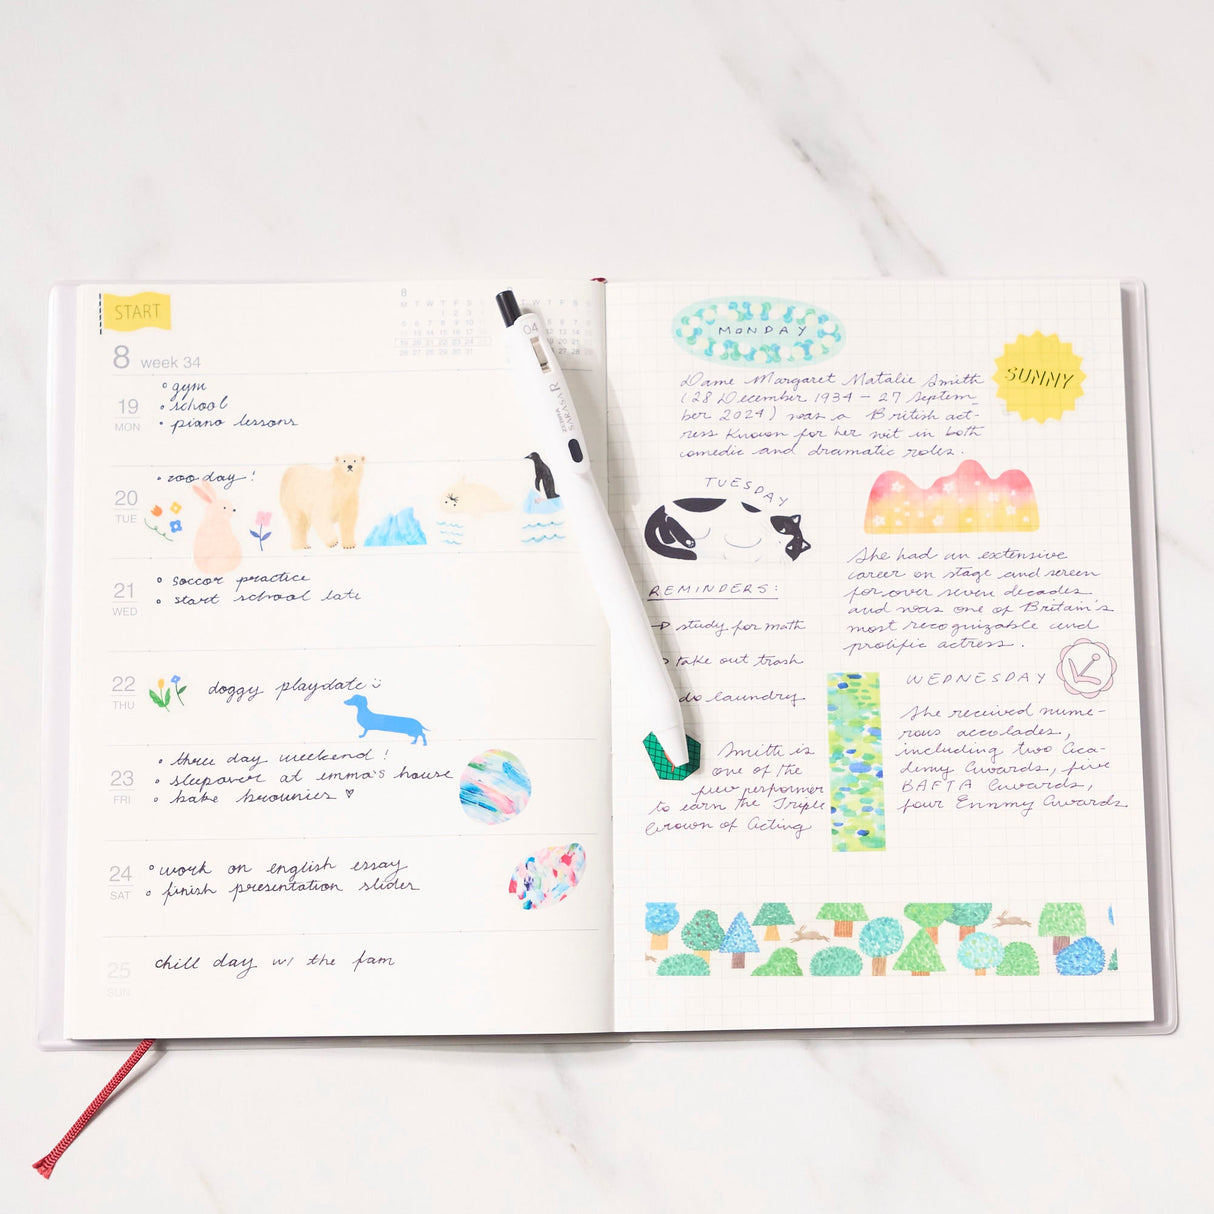 START
8 week 34
8
M T W T F S S
19
MON
gym
school
piano lessons
20
TUE
zoo day!
21
WED
soccor practice
start school late
22
THU
doggy playdate
23
FRI
three day weekend!
sleepover at emma's house
bake brownies
24
SAT
work on english essay
finish presentation slider
25
SUN
chill day w/ the fam
04
ZEBRA
SARASA R
MONDAY
SUNNY
Dame Margaret Natalie Smith
(28 December 1934 – 27 Septem-
ber 2024) was a British act-
ress known for her wit in both
comedic and dramatic roles.
TUESDAY
She had an extensive
career on stage and screen
for over seven decades
and was one of Britain's
most recognizable and
prolific actress.
REMINDERS:
study for math
take out trash
do laundry
Smith is
one of the
few performer
to earn the Triple
Crown of Acting
WEDNESDAY
She received nume-
rous accolades,
including two Aca-
demy Awards, five
BAFTA Awards,
four Emmy Awards